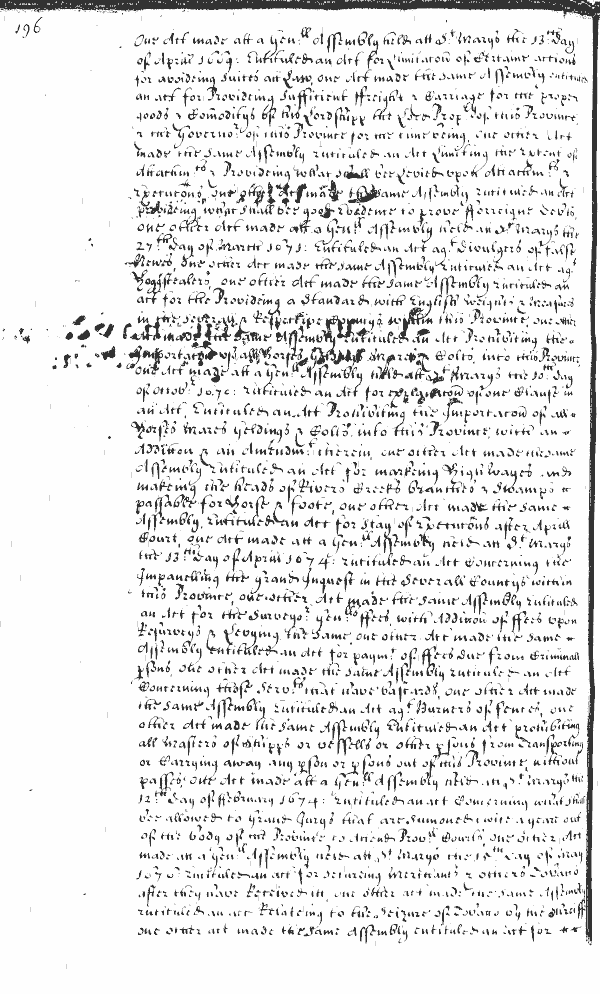 196
One Act made att a Gen:ll Assembly held att St Marys the 13th Day
of Aprill 1669: Entituled an Act for Limitacon of Certaine actions
for avoideing Suites att Law, one Act made the same Assembly entituled
an act for Provideing Sufficient ffreight & Carriage for the proper
goods & Comoditys of his Lordshipp the Lord Propry of this Province
& the Governor of this Province for the time being, one other Act
made the same Assembly entituled an Act Limiting the extent of
Attachmts & Provideing what shall bee Levied upon Attachmts &
Executons, one other Act made the same Assembly entituled an Act
Provideing what shall bee good Evidence to prove fforreigne Debts,
one other Act made att a Gen:ll Assembly held att St Marys the
27th Day of March 1671: Entituled an Act agt Divulgers of false
Newes, One other Act made the same Assembly Entituled an Act agt
Hoggstealers, one other Act made the same Assembly entituled an
act for the Provideing a Standard, with English weights & Measures
in the severall & Respective Countys within this Province, one other
Act made the same Assembly Entituled an Act Prohibiting the
Importacon of all Horses, Mares & Colts, into this Province,
one Act made att a Gen:ll Assembly held att St Marys the 10th Day
of entituled an Act for explanacon of one Clause in
an Act, Entituled an Act Prohibiting the Importacon of all
Horses Mares Geldings & Colts, into this Province, with an
Addition & an Amendmt therein, one other Act made the same
Assembly Entituled an Act for markeing High wayes and
makeing the heads of Rivers Creeks branches & Swamps
passable for Horse & foote, one other Act made the same
Assembly, entituled an Act for Stay of Executons after Aprill
Court, one Act made att a Gen:ll Assembly held att St Marys
the 13th Day of Aprill 1674: entituled an Act Concerning the
Impanelling the Grand Inquest in the Severall Countys within
this Province, one other Act made the same Assembly entituled
an Act for the Surveyor Gen:lls ffees, with Addition of ffees upon
Resurveys & Levying the same, one other Act made the same
Assembly entituled an Act for paymt of ffees due from Criminall
psons, one other Act made the same Assembly entituled an Act
Concerning those Servts that have bastards, one other Act made
the same Assembly entituled an Act agt Burners of fences, one
other Act made the same Assembly Entituled an Act prohibiting
all Masters of Shipps or vessells or other psons, from Transporting
or Carrying away any pson or psons out of this Province, without
passes, one Act made att a Gen:ll Assembly held att St Marys the
12th Day of ffebruary 1674: entituled an act Concerning what shall
bee allowed to Grand Jurys that are summoned twice a yeare out
of the body of the Province to Attend Provll Courts, one other Act
made att a Gen:ll Assembly held att St Marys the 15th Day of May
1676 entituled an act for secureing Merchants & others Tobacco
after they have Received itt, one other act made the same Assembly
entituled an act Relateing to the Seizure of Tobacco by the Sherriffs
one other act made the same Assembly entituled an act for